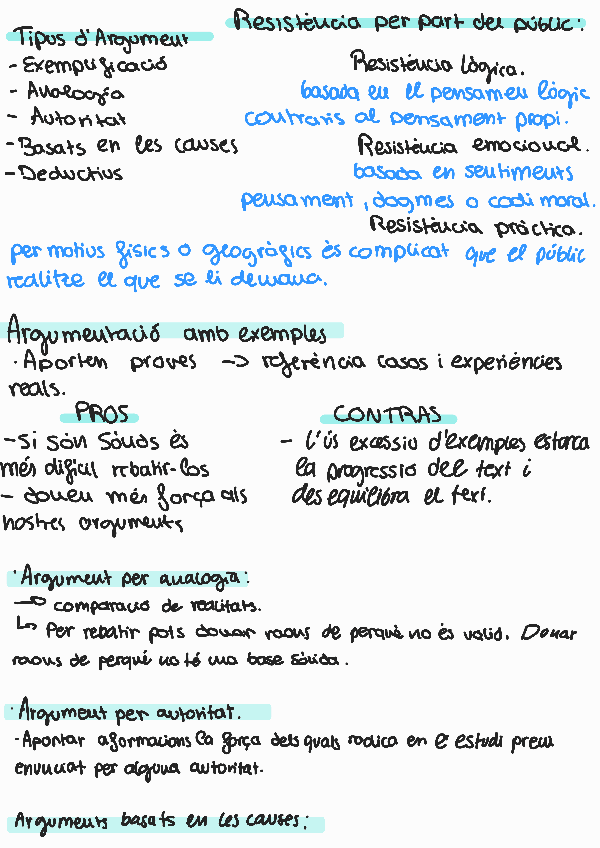 Tipus d'Argument
- Exemplificació
- Analogía
- Autoritat
- Basats en les causes
- Deductius
Resistència per part del públic:
Resistència lògica.
basada en el pensameu lògic
contraris al pensament propi.
Resistència emocional.
basada en sentiments
pensament, dogmes o codi moral.
Resistència pràctica.
per motius físics o geogràfics és complicat que el públic
realitze el que se li demana.
Argumentació amb exemples
· Aporten proves -> referència casos i experiències
reals.
PROS
- Si són sòlids és
més difícil rebatir-los
- donen més força als
nostres arguments
CONTRAS
- L'ús excessiu d'exemples estanca
la progressió del text i
desequilibra el text.
· Argument per analogia:
-> comparació de realitats.
↳ Per rebatir pots donar raons de perquè no és valid. Donar
raons de perqué no té una base sòlida.
· Argument per autoritat.
- Aportar afirmacions la força dels quals radica en e estudi previ
enunciat per alguna autoritat.
Arguments basats en les causes: